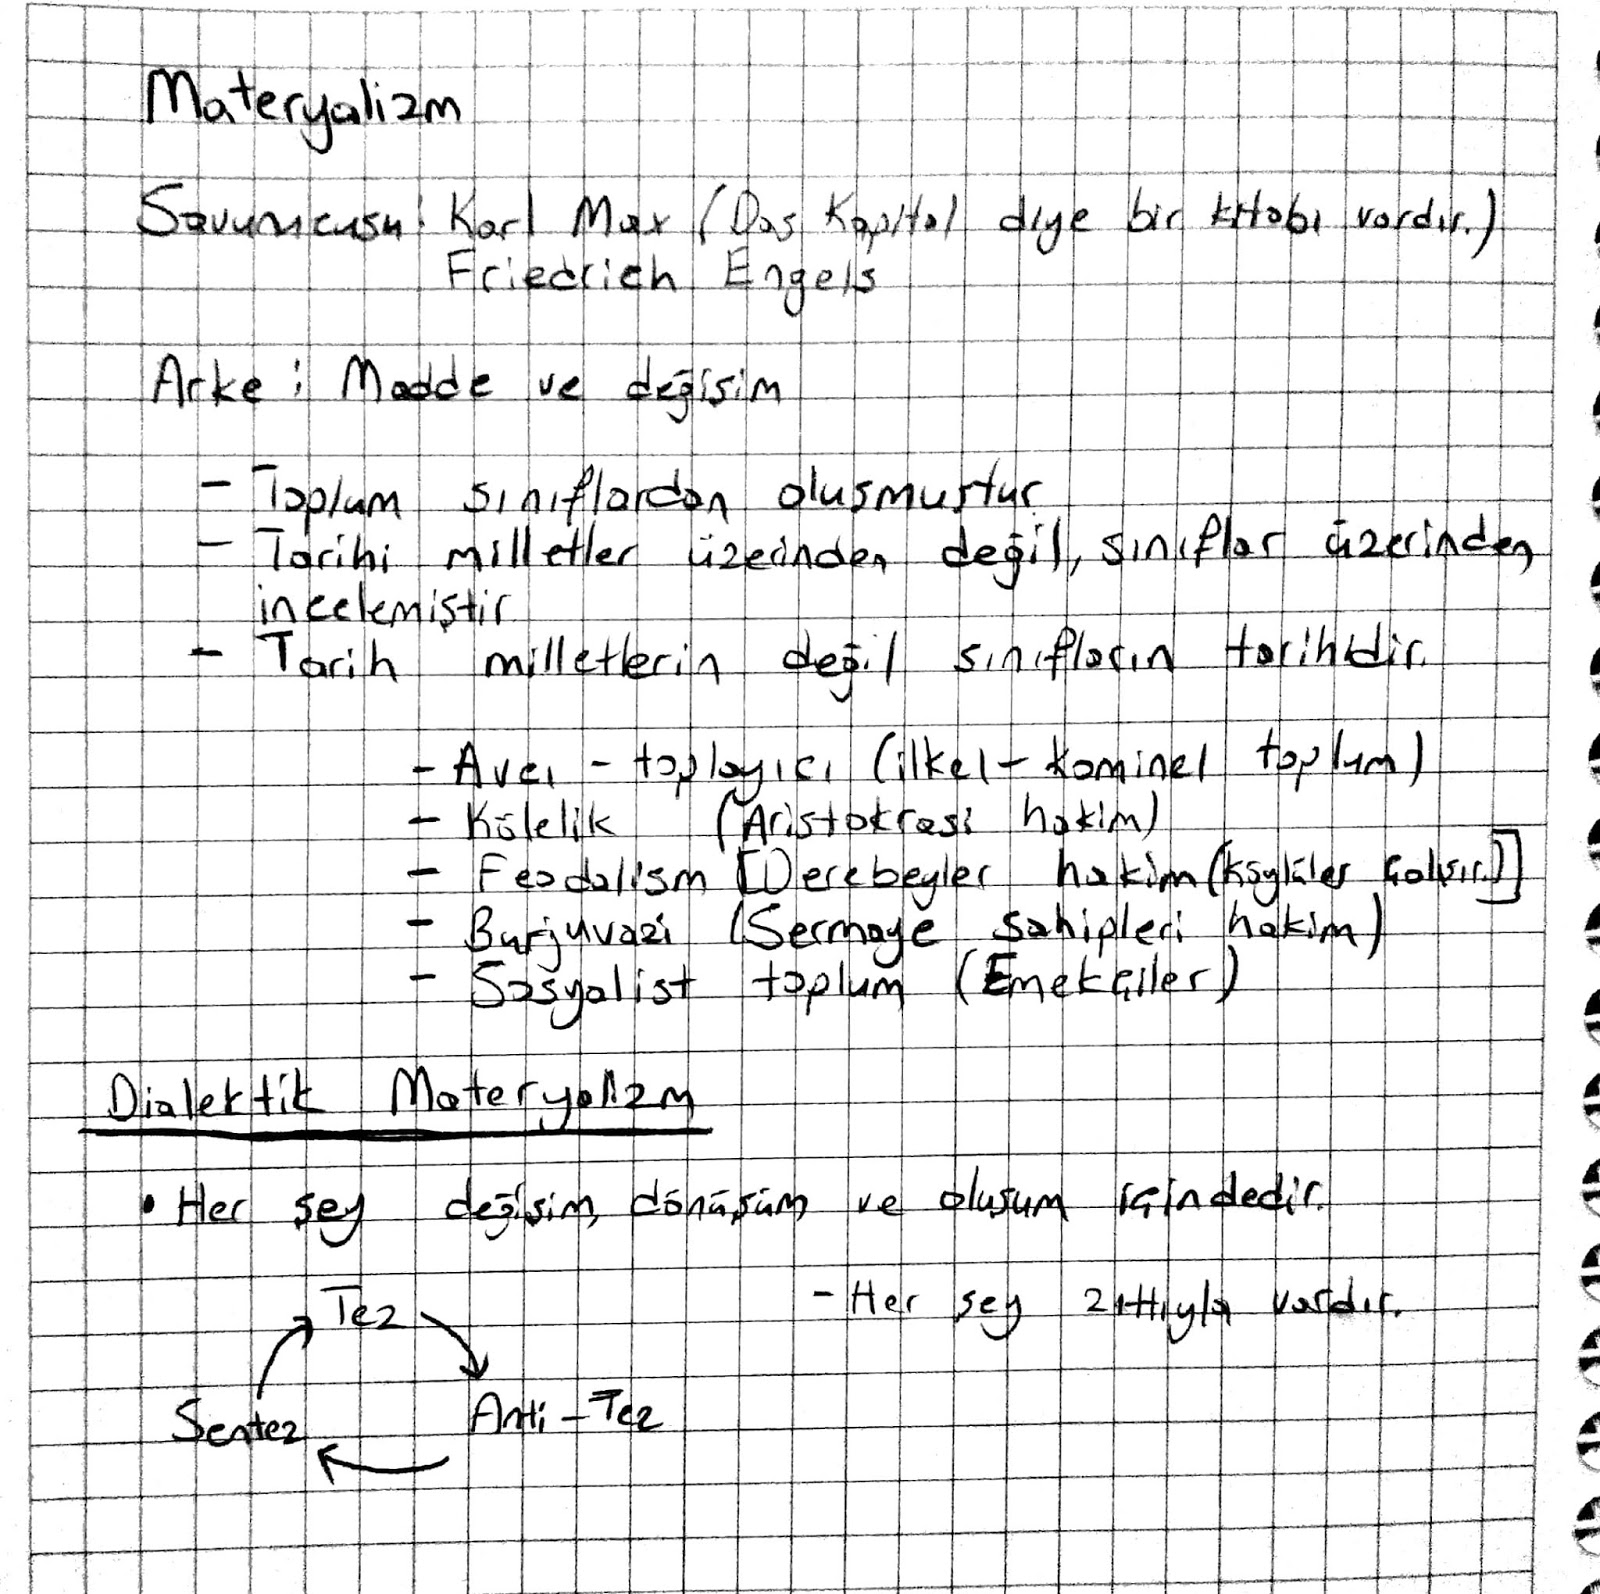 Materyalizm
Savunucusu: Karl Max (Das Kapital diye bir kitabı vardır.)
Friedrich Engels
Arke: Madde ve değişim
- Toplum sınıflardan oluşmuştur
- Tarihi milletler üzerinden değil, sınıflar üzerinden
incelemiştir
- Tarih milletlerin değil sınıfların tarihidir.
- Avcı - toplayıcı (ilkel - kominel toplum)
- Kölelik (Aristokrasi hakim)
- Feodalism [Derebeyler hakim (Köylüler Çalışır.)]
- Burjuvazi (Sermaye sahipleri hakim)
- Sosyalist toplum (Emekçiler)
Dialektik Materyalizm
• Her şey değişim, dönüşüm ve oluşum içindedir.
Tez - Her şey zıttıyla vardır.
Sentez Anti-Tez